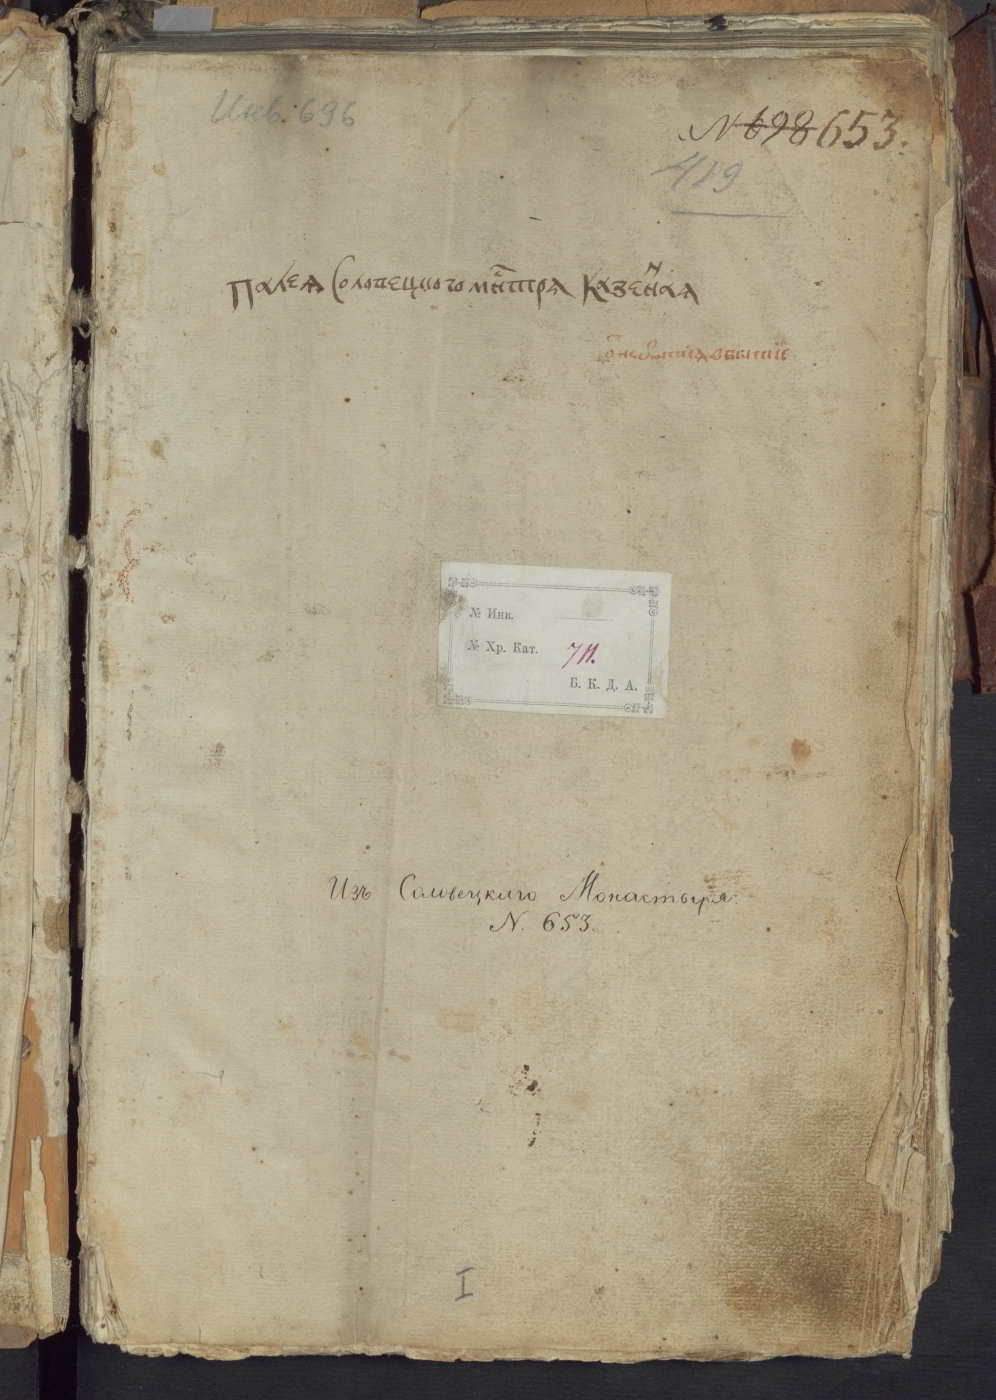 Инв. 696
N 698 653.
419
Палея Соловецкого мн҃тря Казеⷩ҇ная
№ Инв.
№ Хр. Кат. 711.
Б. К. Д. А.
Изъ Соловецкаго Монастыря.
N. 653.
I